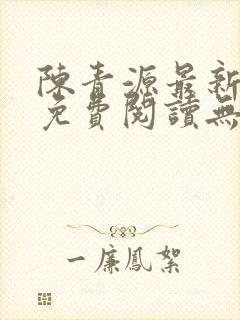 陳青源最新
免費閱讀無
一簾鳳絮